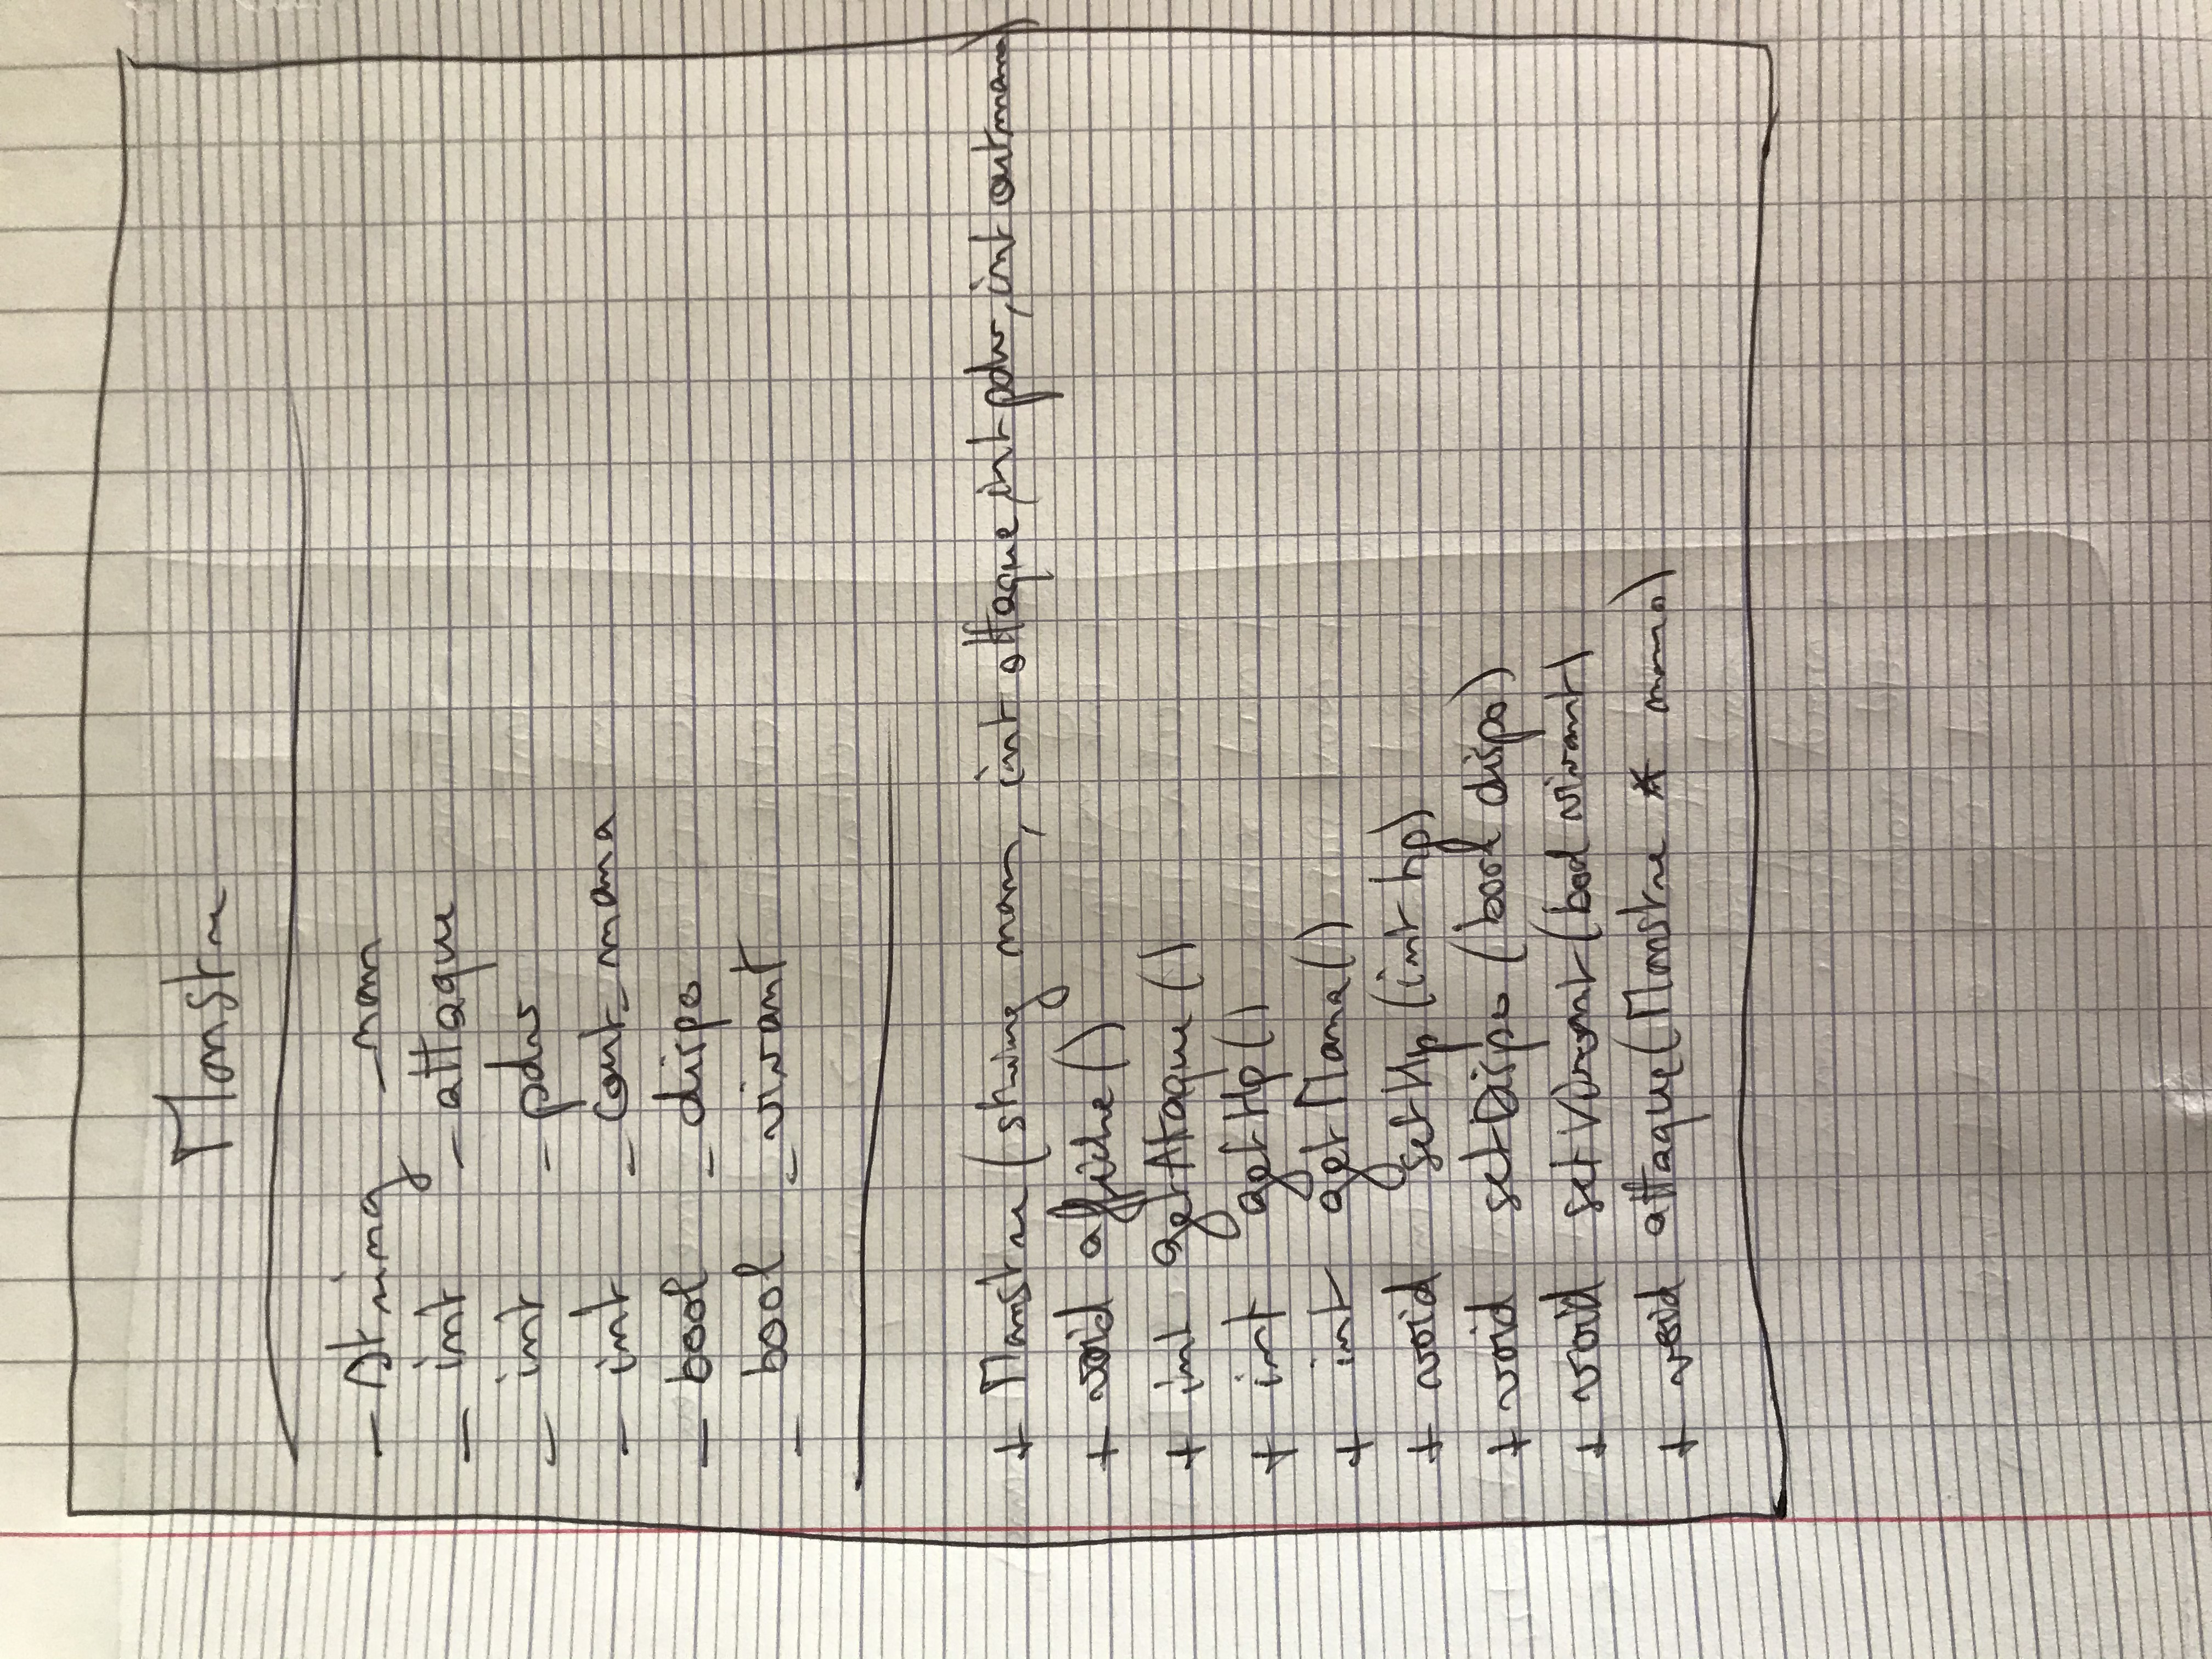 Monstre
- string _nom
- int _attaque
- int _pdv
- int _cout_mana
- bool _dispo
- bool _vivant
+ Monstre (string nom, int attaque, int pdv, int coutmana)
+ void affiche()
+ int getAttaque()
+ int getHp()
+ int getMana()
+ void setHp(int hp)
+ void setDispo(bool dispo)
+ void setVivant(bool vivant)
+ void attaque(Monstre *